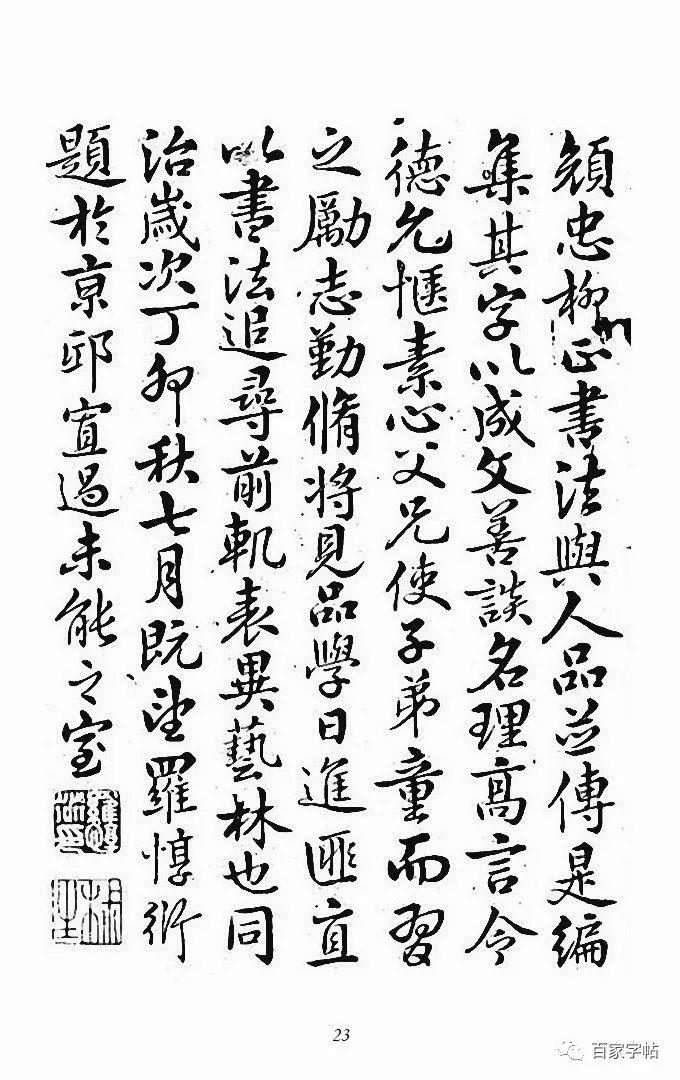 顔忠柳正書法與人品並傳是編
集其字以成文善談名理高言令
德允愜素心父兄使子弟童而習
之勵志勤脩將見品學日進匪直
以書法追尋前軌表異藝林也同
治歲次丁卯秋七月既望羅惇衍
題於京邸寡過未能之室
羅惇衍印
椒生
23
百家字帖